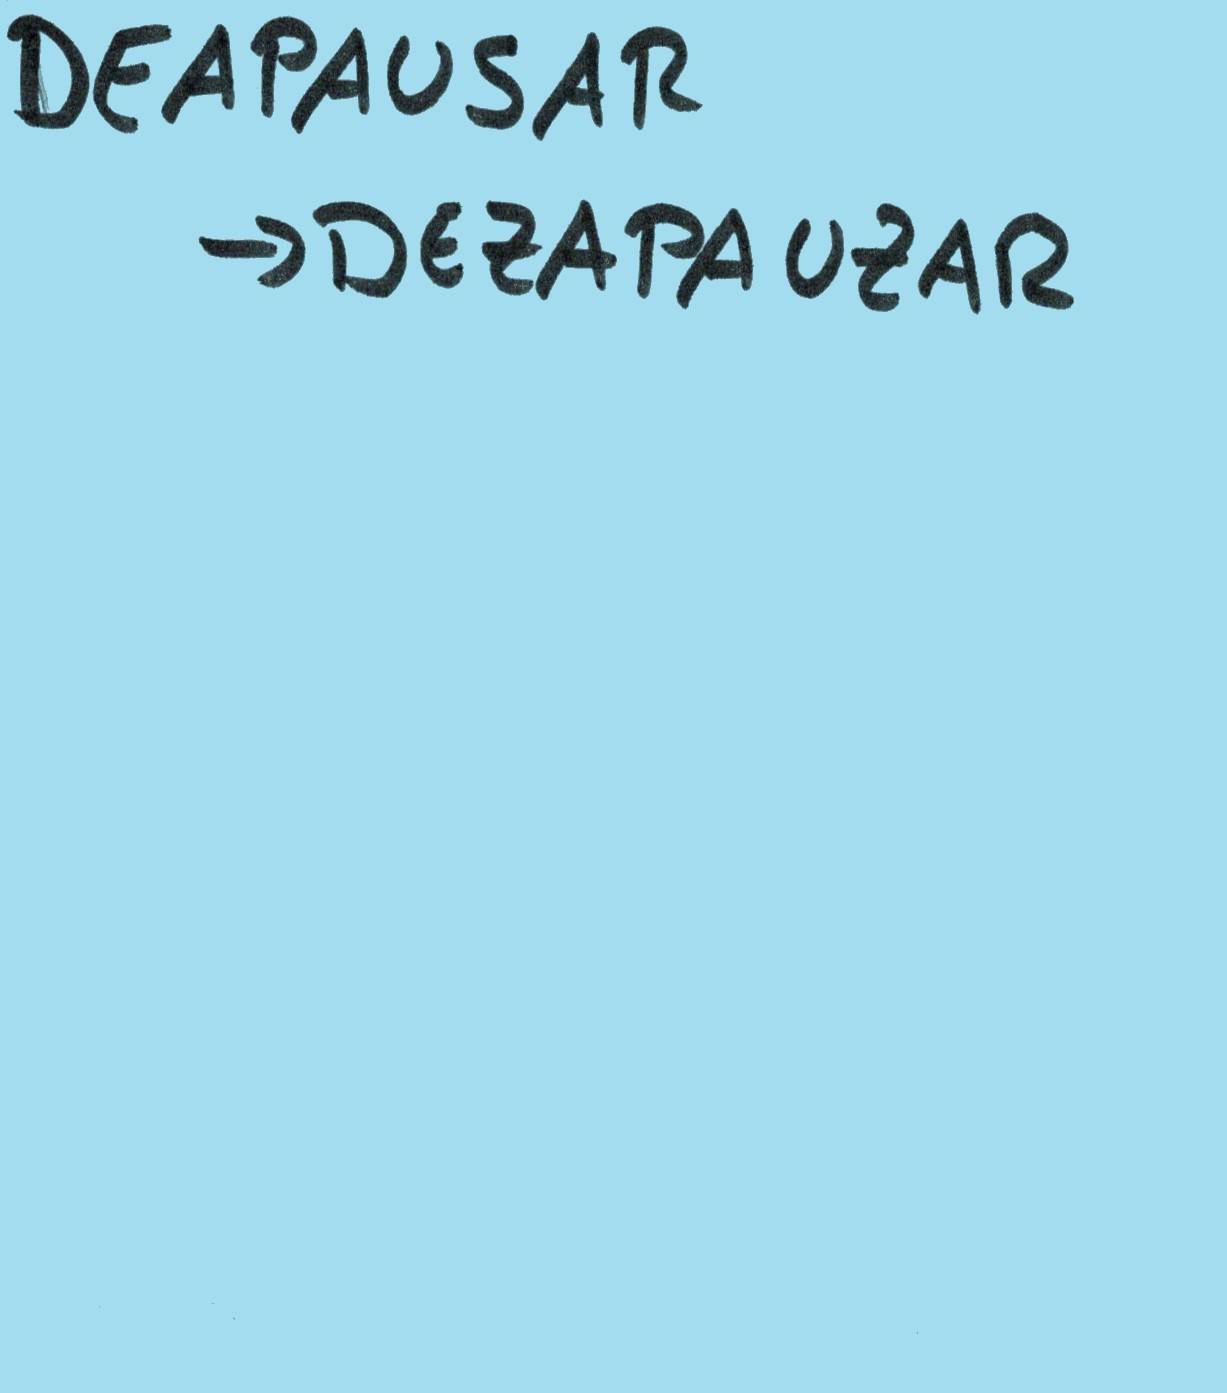 DEAPAUSAR
→DEZAPAUZAR